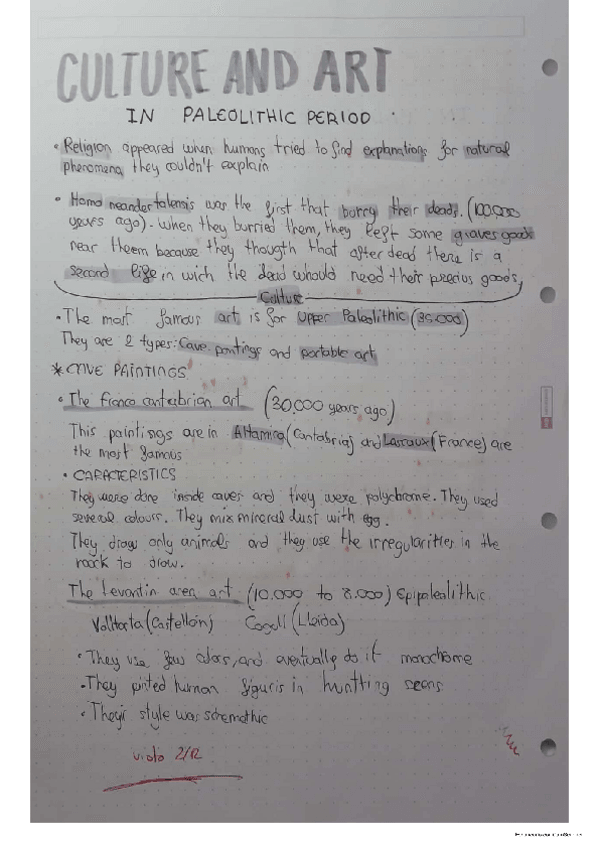 CULTURE AND ART
IN PALEOLITHIC PERIOD.
• Religion appeared when humans tried to find explanations for natural
phenomena they couldn't explain
• Homo neandertalensis was the first that burry their deads. (100.000
years ago). When they burried them, they kept some graves goods
near theem because they thougth that after dead there is a
second life in wich the dead whould need their precius goods,
Culture
• The most famous art is for Upper Paleolithic (35.000)
They are 2 types: Cave pantings and portable art
* CAVE PAINTINGS
• The franco canterbrian art (30,000 years ago)
This paintings are in Altamira (Cantabria) and Lascaux (France) are
the most famous
• CARACTERISTICS
They were done inside caves and they were polychrome. They used
several colours. They mix mineral dust with egg.
They draw only animals and they use the irregularities in the
rock to draw.
The Levantin area art (10.000 to 8.000) Epipalealithic
Valltorta (Castellón) Cogull (Lleida)
• They use few colors, and eventually do it monochome
• They pinted human figuris in huntting scens
• Theyir style was schemathic
visto 2/12